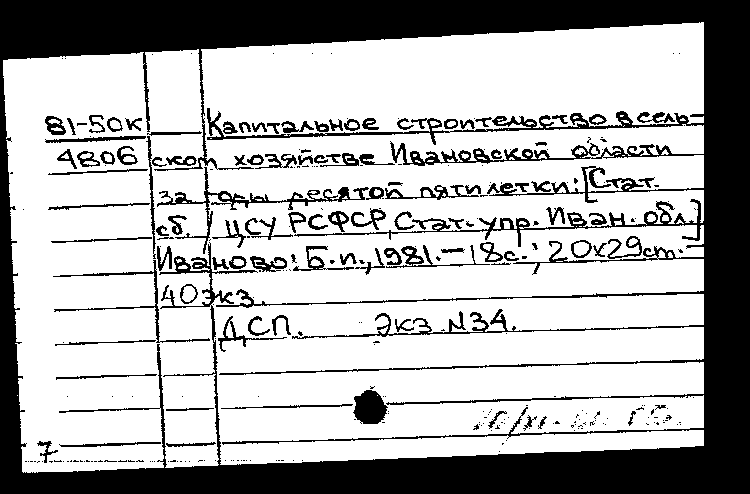 81-50к Капитальное строительство в сель-
4806 ском хозяйстве Ивановской области
за годы десятой пятилетки: [Стат.
сб. / ЦСУ РСФСР, Стат. упр. Иван. обл.]
Иваново: Б.п., 1981. – 18с.; 20х29см. –
40экз.
ДСП. Экз. N34.
7